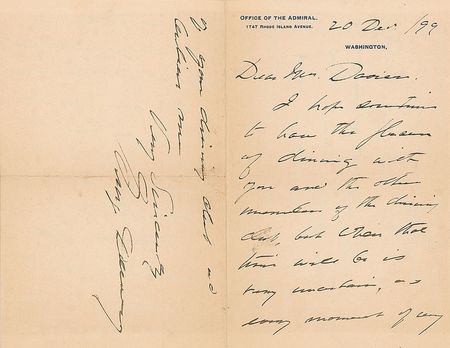 OFFICE OF THE ADMIRAL.
1747 RHODE ISLAND AVENUE.
20 Dec /99
WASHINGTON,
Dear Mrs. Davies.
I hope sometime
to have the pleasure
of dining with
you and the other
members of the dining
club, but when that
time will be is
very uncertain, as
every moment of my
if your dining club as
Very Sincerely
George Dewey